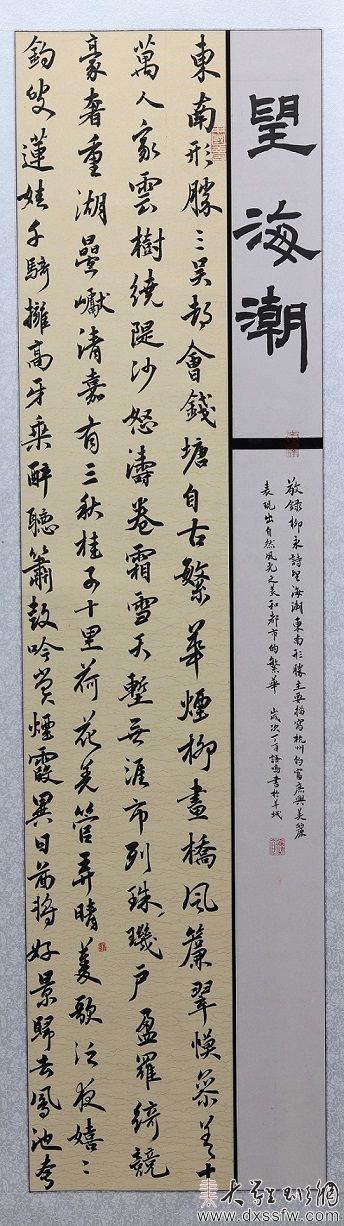 望海潮
敬錄柳永詩望海潮東南形勝主要描寫杭州的富庶與美麗
表現出自然風光之美和都市的繁華 歲次丁酉語鳴書於羊城
東南形勝三吳都會錢塘自古繁華煙柳畫橋風簾翠幙參差十
萬人家雲樹繞隄沙怒濤卷霜雪天塹无涯市列珠璣戶盈羅綺競
豪奢重湖疊巘清嘉有三秋桂子十里荷花羌管弄晴菱歌泛夜嬉〻
釣叟蓮娃千騎擁高牙乘醉聽簫鼓吟賞煙霞異日圖將好景歸去鳳池夸
大學生書法網
www.dxssfw.com